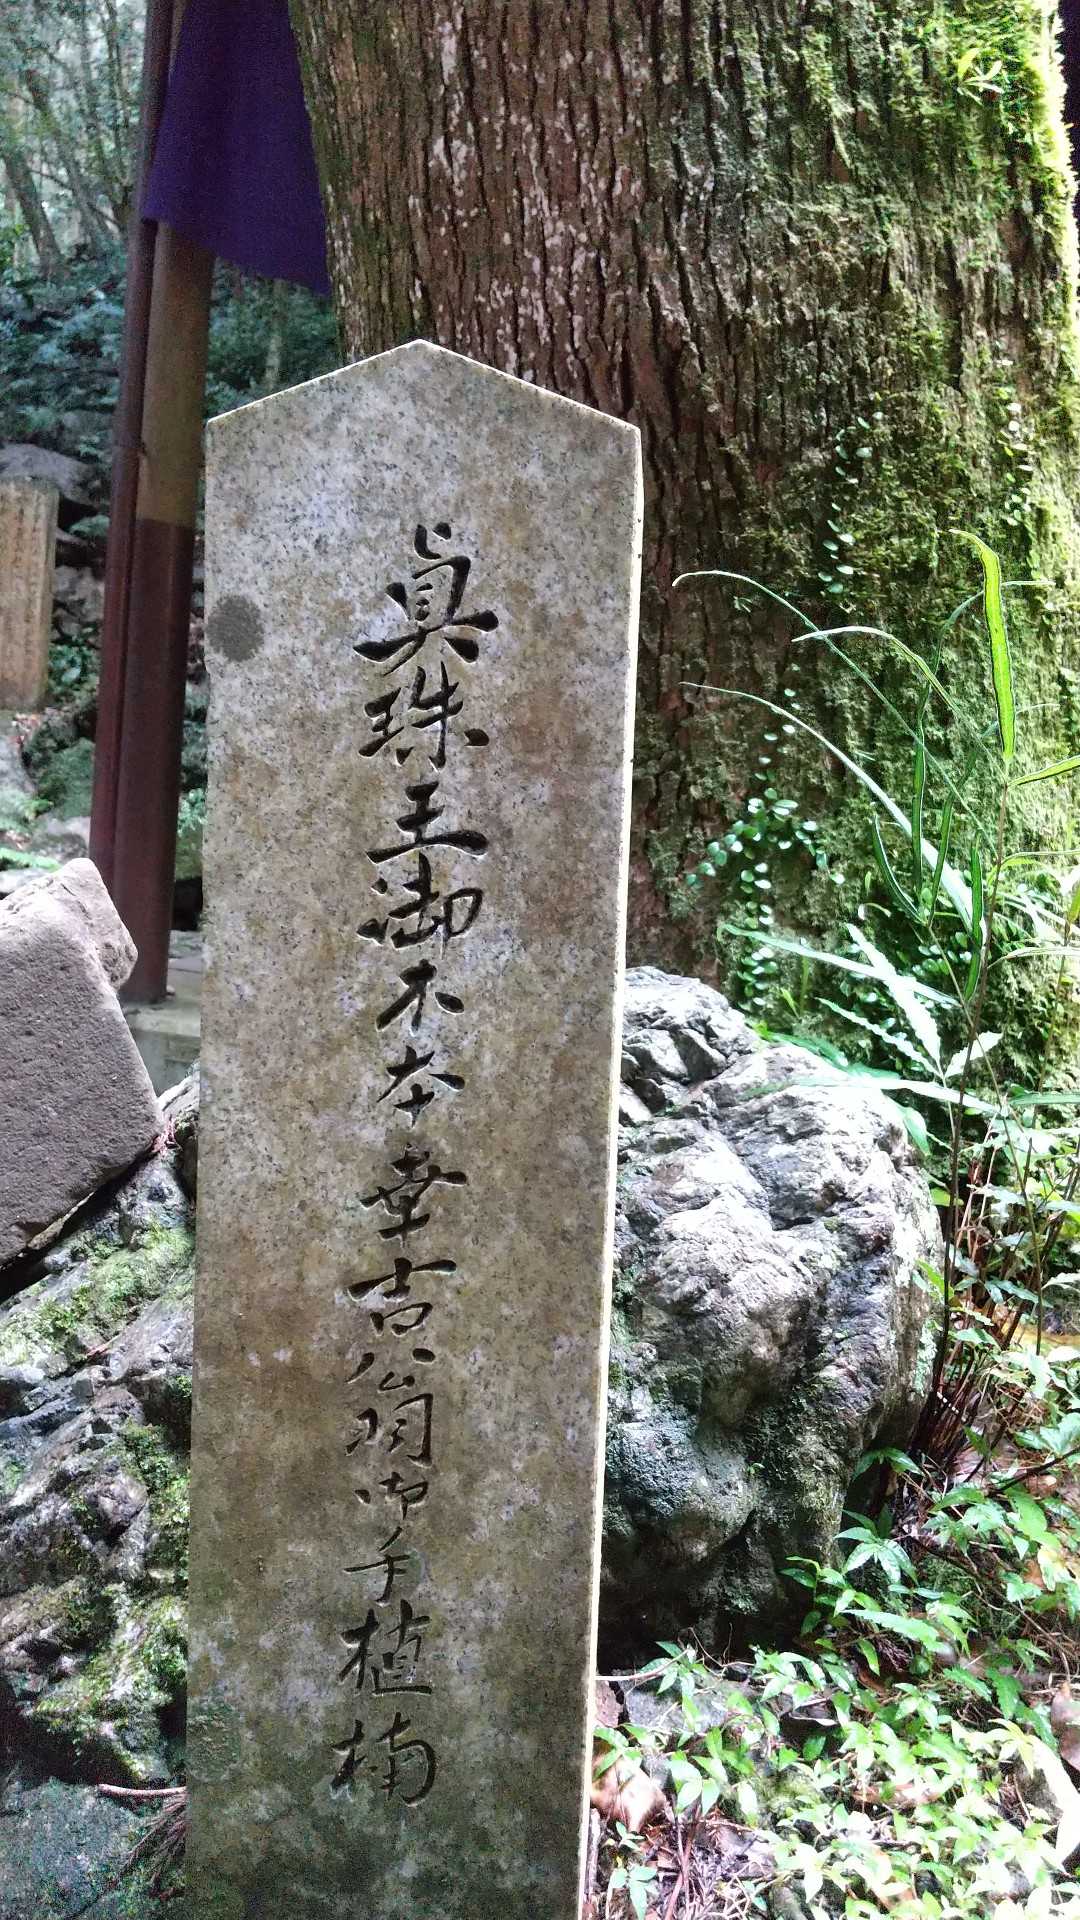 眞珠王御木本幸吉翁御手植楠